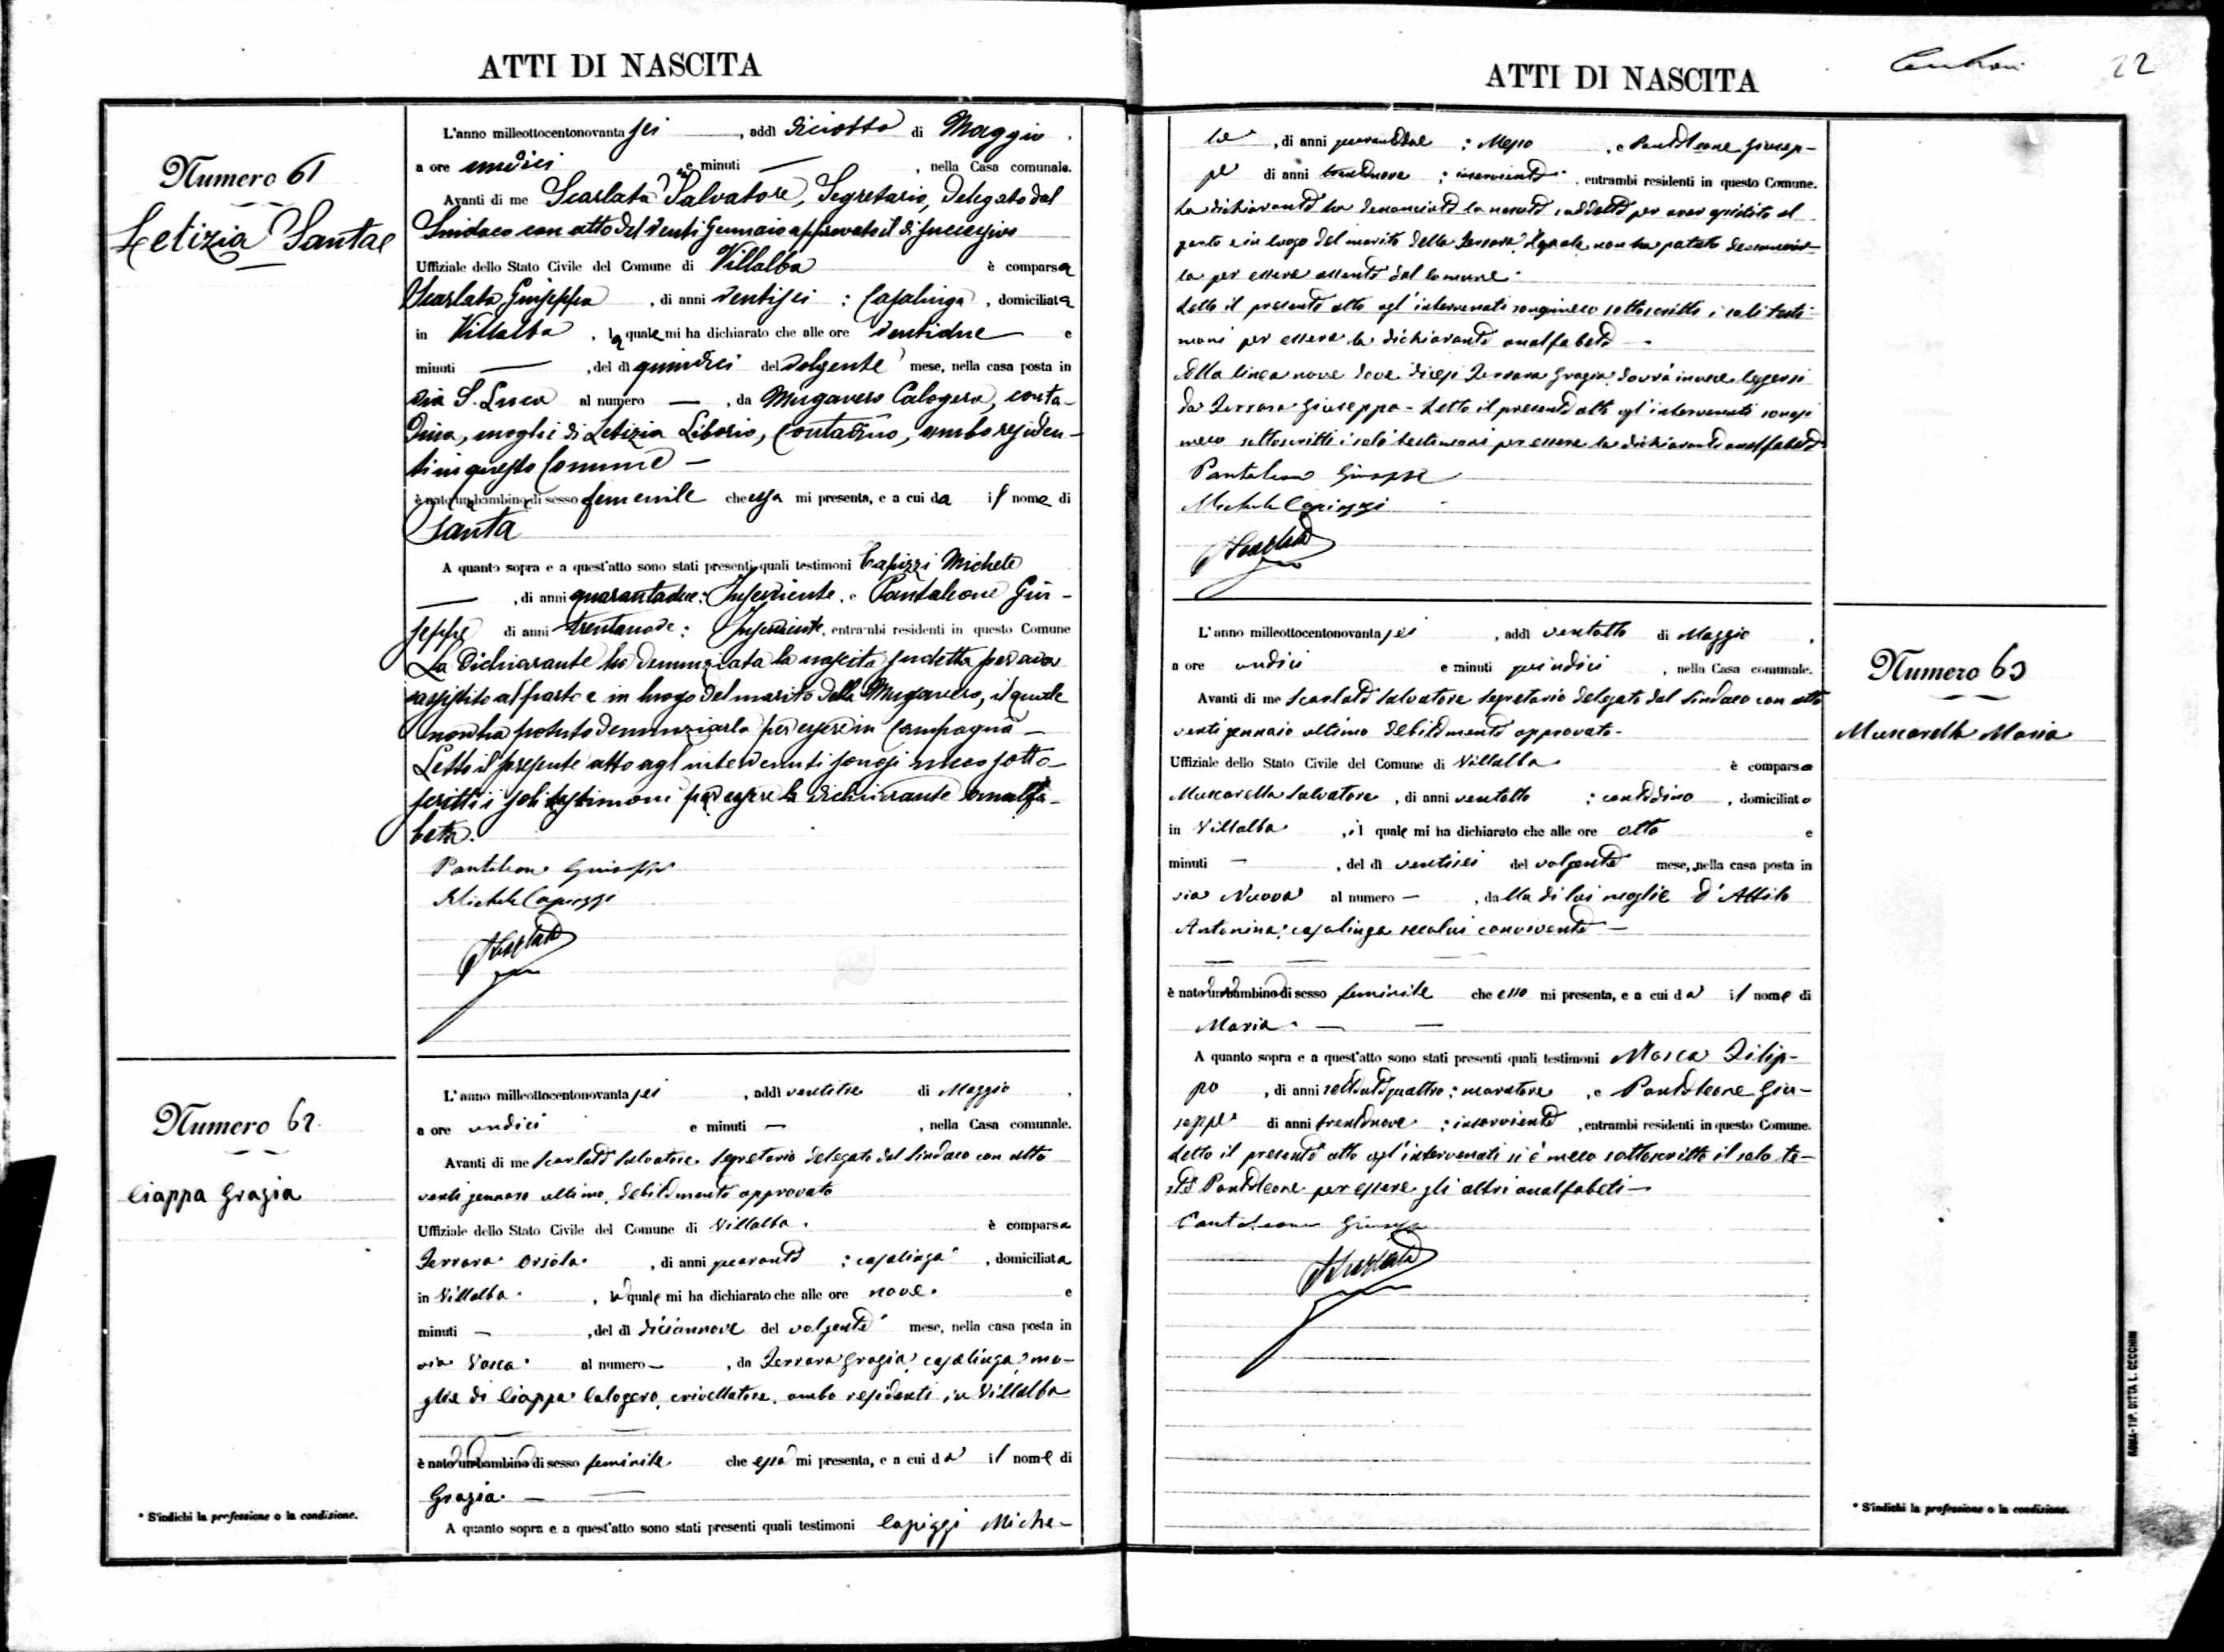 ATTI DI NASCITA
Numero 61
Letizia Santa
L'anno milleottocentonovanta sei, addì diciotto di Maggio,
a ore undici e minuti —, nella Casa comunale.
Avanti di me Scarlata Salvatore, Segretario, Delegato dal
Sindaco con atto del venti Gennaio approvato il dì successivo
Uffiziale dello Stato Civile del Comune di Villalba è comparsa
Scarlata Giuseppa, di anni ventisei; Casalinga, domiciliata
in Villalba, la quale mi ha dichiarato che alle ore ventidue e
minuti —, del dì quindici del volgente mese, nella casa posta in
via S. Luca al numero —, da Mugavero Calogera, conta-
dina, moglie di Letizia Liborio, Contadino, ambo residen-
ti in questo Comune —
è nata una bambina di sesso femenile che essa mi presenta, e a cui da il nome di
Santa
A quanto sopra e a quest'atto sono stati presenti quali testimoni Capizzi Michele
—, di anni quarantadue; Inserviente, e Pantaleone Giu-
seppe di anni trentanove; Inserviente, entrambi residenti in questo Comune
La Dichiarante ha denunziata la nascita sudetta per aver
assistito al parto e in luogo del marito della Mugavero, il quale
non ha potuto denunziarla per essere in Campagna —
Letto il presente atto agl'intervenuti sonosi meco sotto-
scritti i soli testimoni per essere la dichiarante analfa-
beta.
Pantaleone Giuseppe
Michele Capizzi
SScarlata
Numero 62
Ciappa Grazia
L'anno milleottocentonovanta sei, addì ventitre di Maggio,
a ore undici e minuti —, nella Casa comunale.
Avanti di me Scarlata Salvatore Segretario delegato dal Sindaco con atto
venti gennaro ultimo, debitamente approvato
Uffiziale dello Stato Civile del Comune di Villalba è comparsa
Ferrara Orsola, di anni quaranta; casalinga, domiciliata
in Villalba, la quale mi ha dichiarato che alle ore nove e
minuti —, del dì diciannove del volgente mese, nella casa posta in
via Vasca al numero —, da Ferrara Grazia, casalinga, mo-
glie di Ciappa Calogero, crivellatore, ambo residenti in Villalba
è nata una bambina di sesso feminile che essa mi presenta, e a cui dà il nome di
Grazia —
A quanto sopra e a quest'atto sono stati presenti quali testimoni Capizzi Miche-
* S'indichi la professione o la condizione.
ATTI DI NASCITA
22
le, di anni quarantadue; Messo, e Pantaleone Giusep-
pe di anni trentanove; inserviente, entrambi residenti in questo Comune.
La dichiarante ha denunciato la nascita suddetta per aver assistito al
parto e in luogo del marito della Ferrara, il quale non ha potuto denunciar-
la per essere assente dal Comune.
Letto il presente atto agl'intervenuti sonsi meco sottoscritti i soli testi-
moni per essere la dichiarante analfabeta —
Alla linea nove dove dicesi Ferrara Grazia dovrà invece leggersi
da Ferrara Giuseppa - Letto il presente atto agl'intervenuti sonosi
meco sottoscritti i soli testimoni per essere la dichiarante analfabeta
Pantaleone Giuseppe
Michele Capizzi
SScarlata
L'anno milleottocentonovanta sei, addì ventotto di Maggio,
a ore undici e minuti quindici, nella Casa comunale.
Avanti di me Scarlata Salvatore Segretario delegato dal Sindaco con atto
venti gennaio ultimo debitamente approvato -
Uffiziale dello Stato Civile del Comune di Villalba è comparso
Muscarella Salvatore, di anni ventotto; contadino, domiciliato
in Villalba, il quale mi ha dichiarato che alle ore otto e
minuti —, del dì ventisei del volgente mese, nella casa posta in
via Nuova al numero —, dalla di lui moglie D'Attilo
Antonina; casalinga secolui convivente —
è nata una bambina di sesso feminile che esso mi presenta, e a cui dà il nome di
Maria. —
A quanto sopra e a quest'atto sono stati presenti quali testimoni Mosca Filip-
po, di anni settantaquattro; muratore, e Pantaleone Giu-
seppe di anni trentanove; inserviente, entrambi residenti in questo Comune.
Letto il presente atto agl'intervenuti si è meco sottoscritto il solo te-
ste Pantaleone per essere gli altri analfabeti —
Pantaleone Giuseppe
SScarlata
Numero 63
Muscarella Maria
* S'indichi la professione o la condizione.
ROMA-TIP. DITTA L. CECCHINI